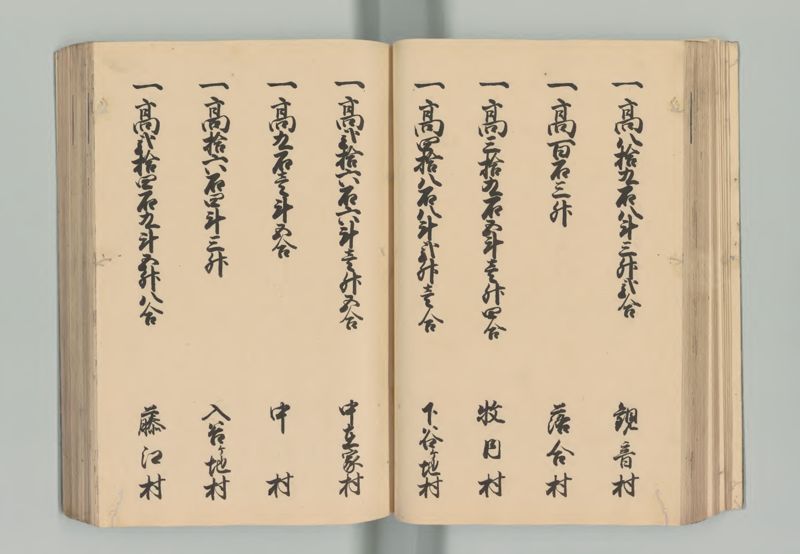 一高八拾九石八斗三升弐合 観音村
一高百石三升 落合村
一高三拾九石五斗壱升四合 牧月村
一高四拾八石八斗弐升壱合 下谷ケ地村
一高弐拾六石六斗壱升五合 中立家村
一高九石壱斗五合 中村
一高拾六石四斗三升 入谷ケ地村
一高弐拾四石九斗五升八合 藤江村